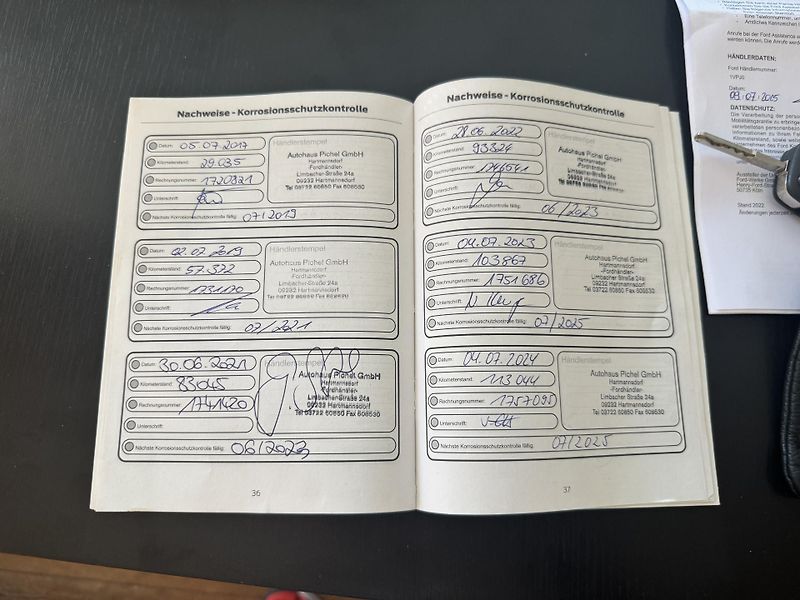 Nachweise - Korrosionsschutzkontrolle
Datum: 05.07.2017
Kilometerstand: 29.035
Rechnungsnummer: 1720821
Unterschrift:
Nächste Korrosionsschutzkontrolle fällig: 07/2019
Händlerstempel
Autohaus Pichel GmbH
Hartmannsdorf
-Fordhändler-
Limbacher Straße 24a
09232 Hartmannsdorf
Tel 03722 60850 Fax 608530
Datum: 02.07.2019
Kilometerstand: 57.372
Rechnungsnummer:
Unterschrift:
Nächste Korrosionsschutzkontrolle fällig: 07/2021
Händlerstempel
Autohaus Pichel GmbH
Hartmannsdorf
-Fordhändler-
Limbacher Straße 24a
09232 Hartmannsdorf
Tel 03722 60850 Fax 608530
Datum: 30.06.2021
Kilometerstand: 83045
Rechnungsnummer: 1741420
Unterschrift:
Nächste Korrosionsschutzkontrolle fällig: 06/2023
Händlerstempel
Autohaus Pichel GmbH
Hartmannsdorf
-Fordhändler-
Limbacher Straße 24a
09232 Hartmannsdorf
Tel 03722 60850 Fax 608530
36
Nachweise - Korrosionsschutzkontrolle
Datum: 28.06.2022
Kilometerstand: 93324
Rechnungsnummer:
Unterschrift:
Nächste Korrosionsschutzkontrolle fällig: 06/2023
Händlerstempel
Autohaus Pichel GmbH
Hartmannsdorf
-Fordhändler-
Limbacher Straße 24a
09232 Hartmannsdorf
Tel 03722 60850 Fax 608530
Datum: 04.07.2023
Kilometerstand: 103867
Rechnungsnummer: 1751686
Unterschrift:
Nächste Korrosionsschutzkontrolle fällig: 07/2025
Händlerstempel
Autohaus Pichel GmbH
Hartmannsdorf
-Fordhändler-
Limbacher Straße 24a
09232 Hartmannsdorf
Tel 03722 60850 Fax 608530
Datum: 04.07.2024
Kilometerstand: 113044
Rechnungsnummer: 1757095
Unterschrift:
Nächste Korrosionsschutzkontrolle fällig: 07/2025
Händlerstempel
Autohaus Pichel GmbH
Hartmannsdorf
-Fordhändler-
Limbacher Straße 24a
09232 Hartmannsdorf
Tel 03722 60850 Fax 608530
37
Eine Telefonnummer,
Amtliches Kennzeichen
Anrufe bei der Ford Assistance
werden können. Die Anrufe
HÄNDLERDATEN:
Ford Händlernummer:
1VPJ0
Datum:
09.07.2025
DATENSCHUTZ:
Die Verarbeitung der
Mobilitätsgarantie zu
Informationen zu Ihrem
50735 Köln
Stand 2022
Änderungen jederzeit